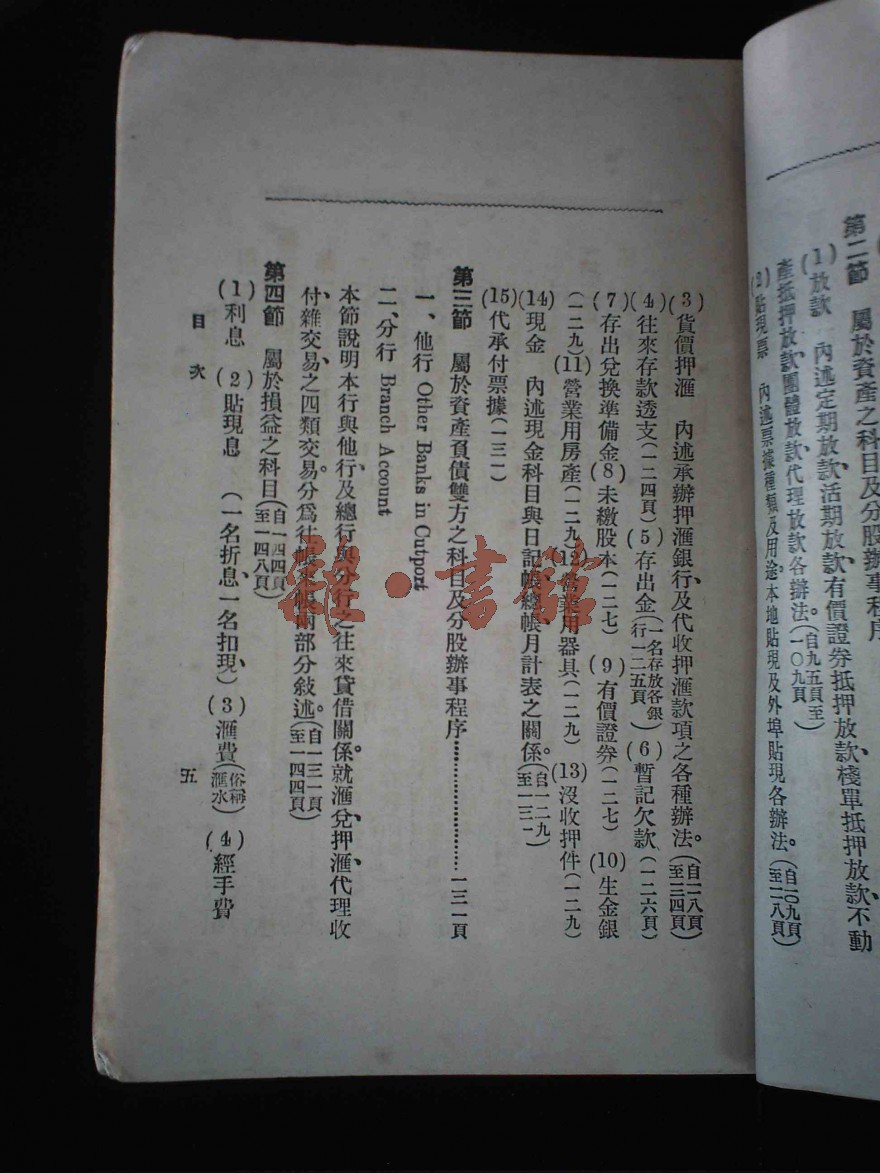 第二節　屬於資產之科目及分股辦事程序
(1)放款　內述定期放款、活期放款、有價證券抵押放款、棧單抵押放款、不動
產抵押放款、團體放款、代理放款各辦法。(自九五頁至一〇九頁)
(2)貼現票　內述票據種類及用途、本地貼現及外埠貼現各辦法。
(3)貨價押滙　內述承辦押滙銀行、及代收押滙款項之各種辦法。
(4)往來存款透支(一二四頁)(5)存出金(一名存放各銀行一二五頁)(6)暫記欠款(一二六頁)
(7)存出兌換準備金(8)未繳股本(一二七)(9)有價證券(一二七)(10)生金銀
(一二九)(11)營業用房產(一二九)(12)營業用器具(一二九)(13)沒收押件(一二九)
(14)現金　內述現金科目與日記帳、總帳、月計表之關係。
(15)代承付票據(一三一)
第三節　屬於資產負債雙方之科目及分股辦事程序……………………一三一頁
一、他行 Other Banks in Cutport
二、分行 Branch Account
本節說明本行與他行、及總行與分行之往來貸借關係。就滙兌、押滙、代理收
付、雜交易之四類交易。分爲往帳、來帳兩部分敍述。(自一三一頁至一四四頁)
第四節　屬於損益之科目(自一四四頁至一四八頁)
(1)利息　(2)貼現息　(一名折息、一名扣現)(3)滙費(俗稱滙水)　(4)經手費
目　次
五
雜·書館